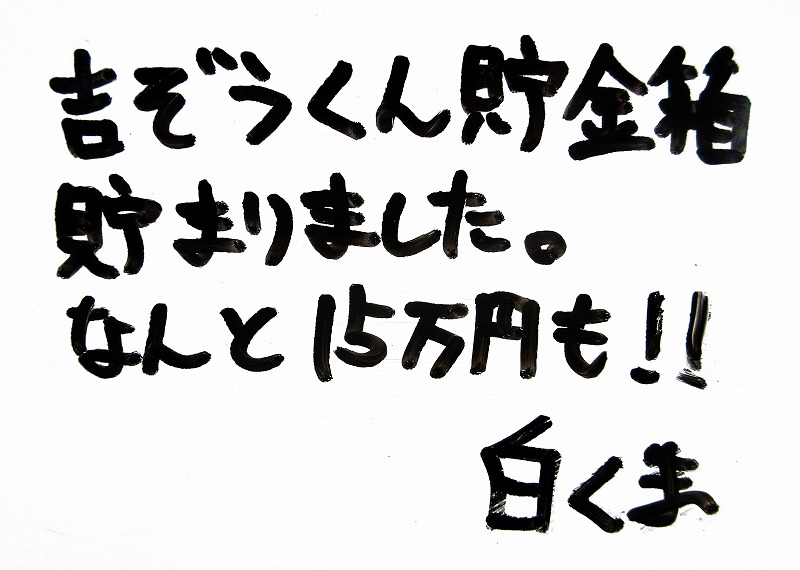 吉ぞうくん貯金箱
貯まりました。
なんと15万円も!!
白くま